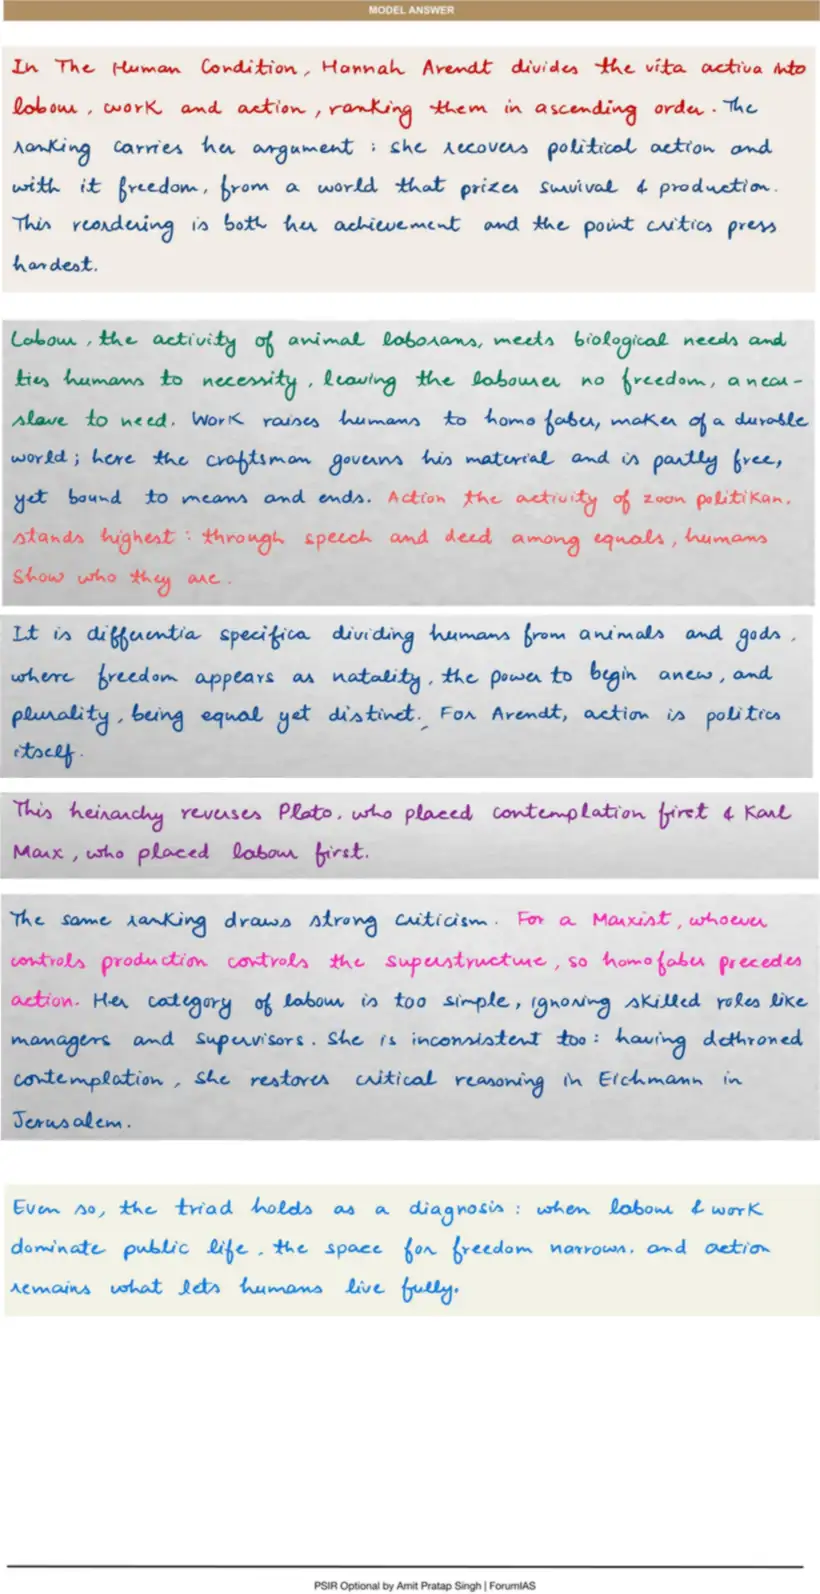 MODEL ANSWER
In The Human Condition, Hannah Arendt divides the vita activa into
labour, work and action, ranking them in ascending order. The
ranking carries her argument : she recovers political action and
with it freedom, from a world that prizes survival & production.
This reordering is both her achievement and the point critics press
hardest.
Labour, the activity of animal laborans, meets biological needs and
ties humans to necessity, leaving the labourer no freedom, a near-
slave to need. Work raises humans to homo faber, maker of a durable
world; here the craftsman governs his material and is partly free,
yet bound to means and ends. Action the activity of zoon politikan,
stands highest : through speech and deed among equals, humans
show who they are.
It is differentia specifica dividing humans from animals and gods,
where freedom appears as natality, the power to begin anew, and
plurality, being equal yet distinct. For Arendt, action is politics
itself.
This heirarchy reverses Plato, who placed contemplation first & Karl
Marx, who placed labour first.
The same ranking draws strong criticism. For a Marxist, whoever
controls production controls the superstructure, so homo faber precedes
action. Her category of labour is too simple, ignoring skilled roles like
managers and supervisors. She is inconsistent too : having dethroned
contemplation, she restores critical reasoning in Eichmann in
Jerusalem.
Even so, the triad holds as a diagnosis : when labour & work
dominate public life, the space for freedom narrows, and action
remains what lets humans live fully.
PSIR Optional by Amit Pratap Singh | ForumIAS